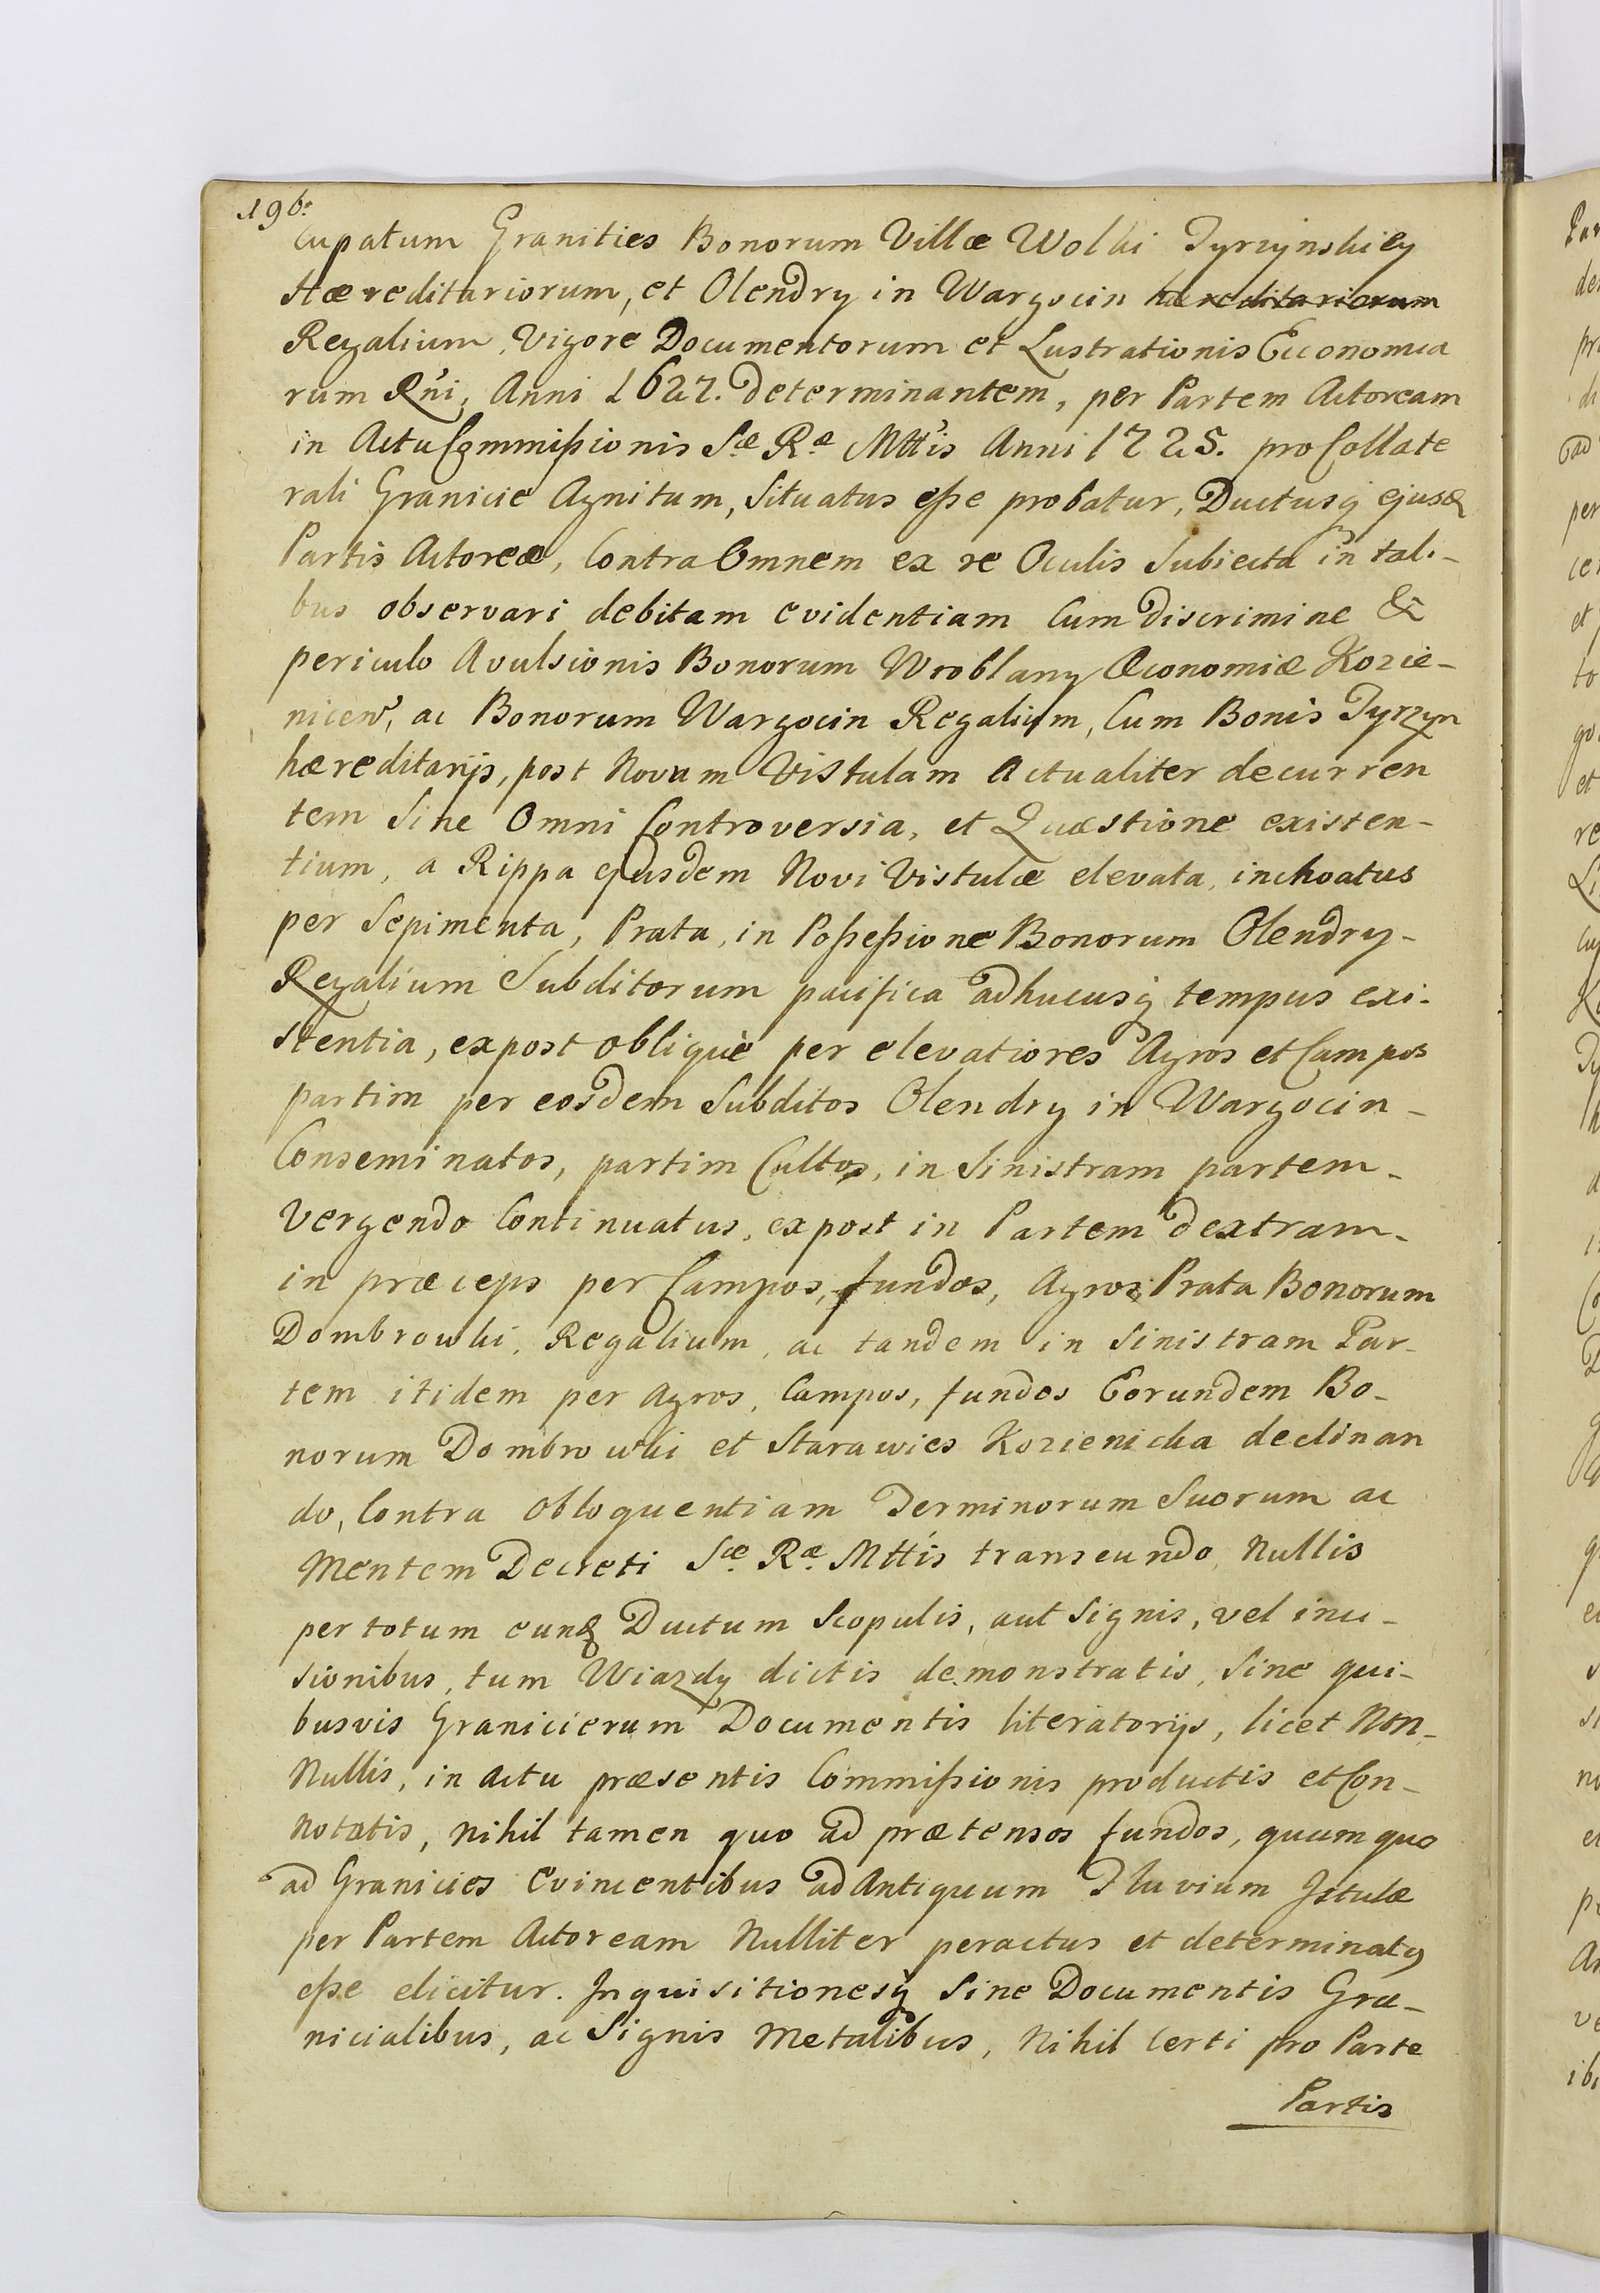 196.
cupatum Granities Bonorum Villæ Wolki Tyrzynskiey
Hæreditariorum, et Olendry in Wargocin hæreditariorum
Regalium, Vigore Documentorum et Lustrationis Œconomia
rum Rñi, Anni 1627. determinantem, per Partem Actoream
in Actu Commißionis Sæ Ræ Mttis Anni 1725. pro Collate
rali Granicie Agnitum, Situatus eße probatur, Ductusq ejusd
Partis Actoreæ, Contra Omnem ex re Oculis Subiecta in tali-
bus observari debitam evidentiam Cum Discrimine &
periculo Avulsionis Bonorum Wroblany Œconomiæ Kozie-
nicen, ac Bonorum Wargocin Regalium, Cum Bonis Tyrzyn
hæreditarijs, post Novam Vistulam Actualiter decurren
tem Sine Omni Controversia, et Quæstione existen-
tium, a Rippa ejusdem Novi Vistulæ elevata, inchoatus
per Sepimenta, Prata, in Poßeßione Bonorum Olendry-
Regalium Subditorum pacifica adhucusq tempus exi-
stentia, expost obliquè per elevatiores Agros et Campos
partim per eosdem Subditos Olendry in Wargocin-
Conseminatos, partim Cultos, in Sinistram partem-
Vergendo Continuatus, expost in Partem dextram-
in præceps per Campos, fundos, Agros, Prata Bonorum
Dombrowki, Regalium, ac tandem in Sinistram Par-
tem itidem per Agros, Campos, fundos Eorundem Bo-
norum Dombrowki et Starawies Kozienicka declinan
do, Contra Obloquentiam Terminorum Suorum ac
Mentem Decreti Sæ Ræ Mttis transeundo, Nullis
per totum eund Ductum Scopulis, aut Signis, vel inci-
sionibus, tum Wiazdy dictis demonstratis, Sine qui-
busvis Granicierum Documentis literatorijs, licet Non-
Nullis, in Actu præsentis Commißionis productis et Con-
notatis, nihil tamen quo ad prætensos fundos, quum quo
ad Granicies evincentibus ad Antiquum Fluvium Istulæ
per Partem Actoream Nulliter peractus et determinatus
eße elicitur. Inquisitionesq Sine Documentis Gra-
nicialibus, ac Signis Metalibus, Nihil Certi pro Parte
Partis